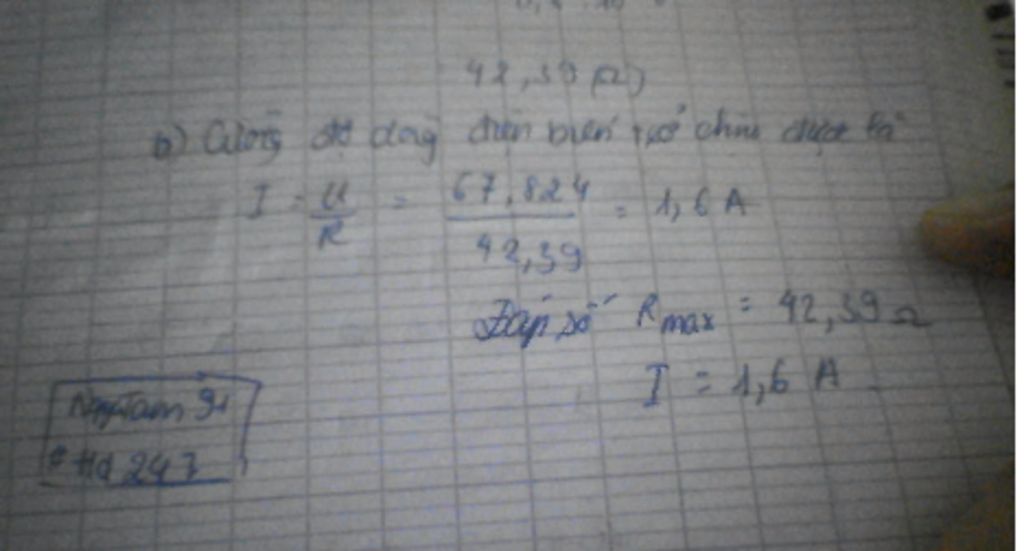 42,39 (Ω)
b) Cường độ dòng điện biến trở chịu được là
I = U/R = 67,824/42,39 = 1,6 A
Đáp số R max = 42,39 Ω
I = 1,6 A
247